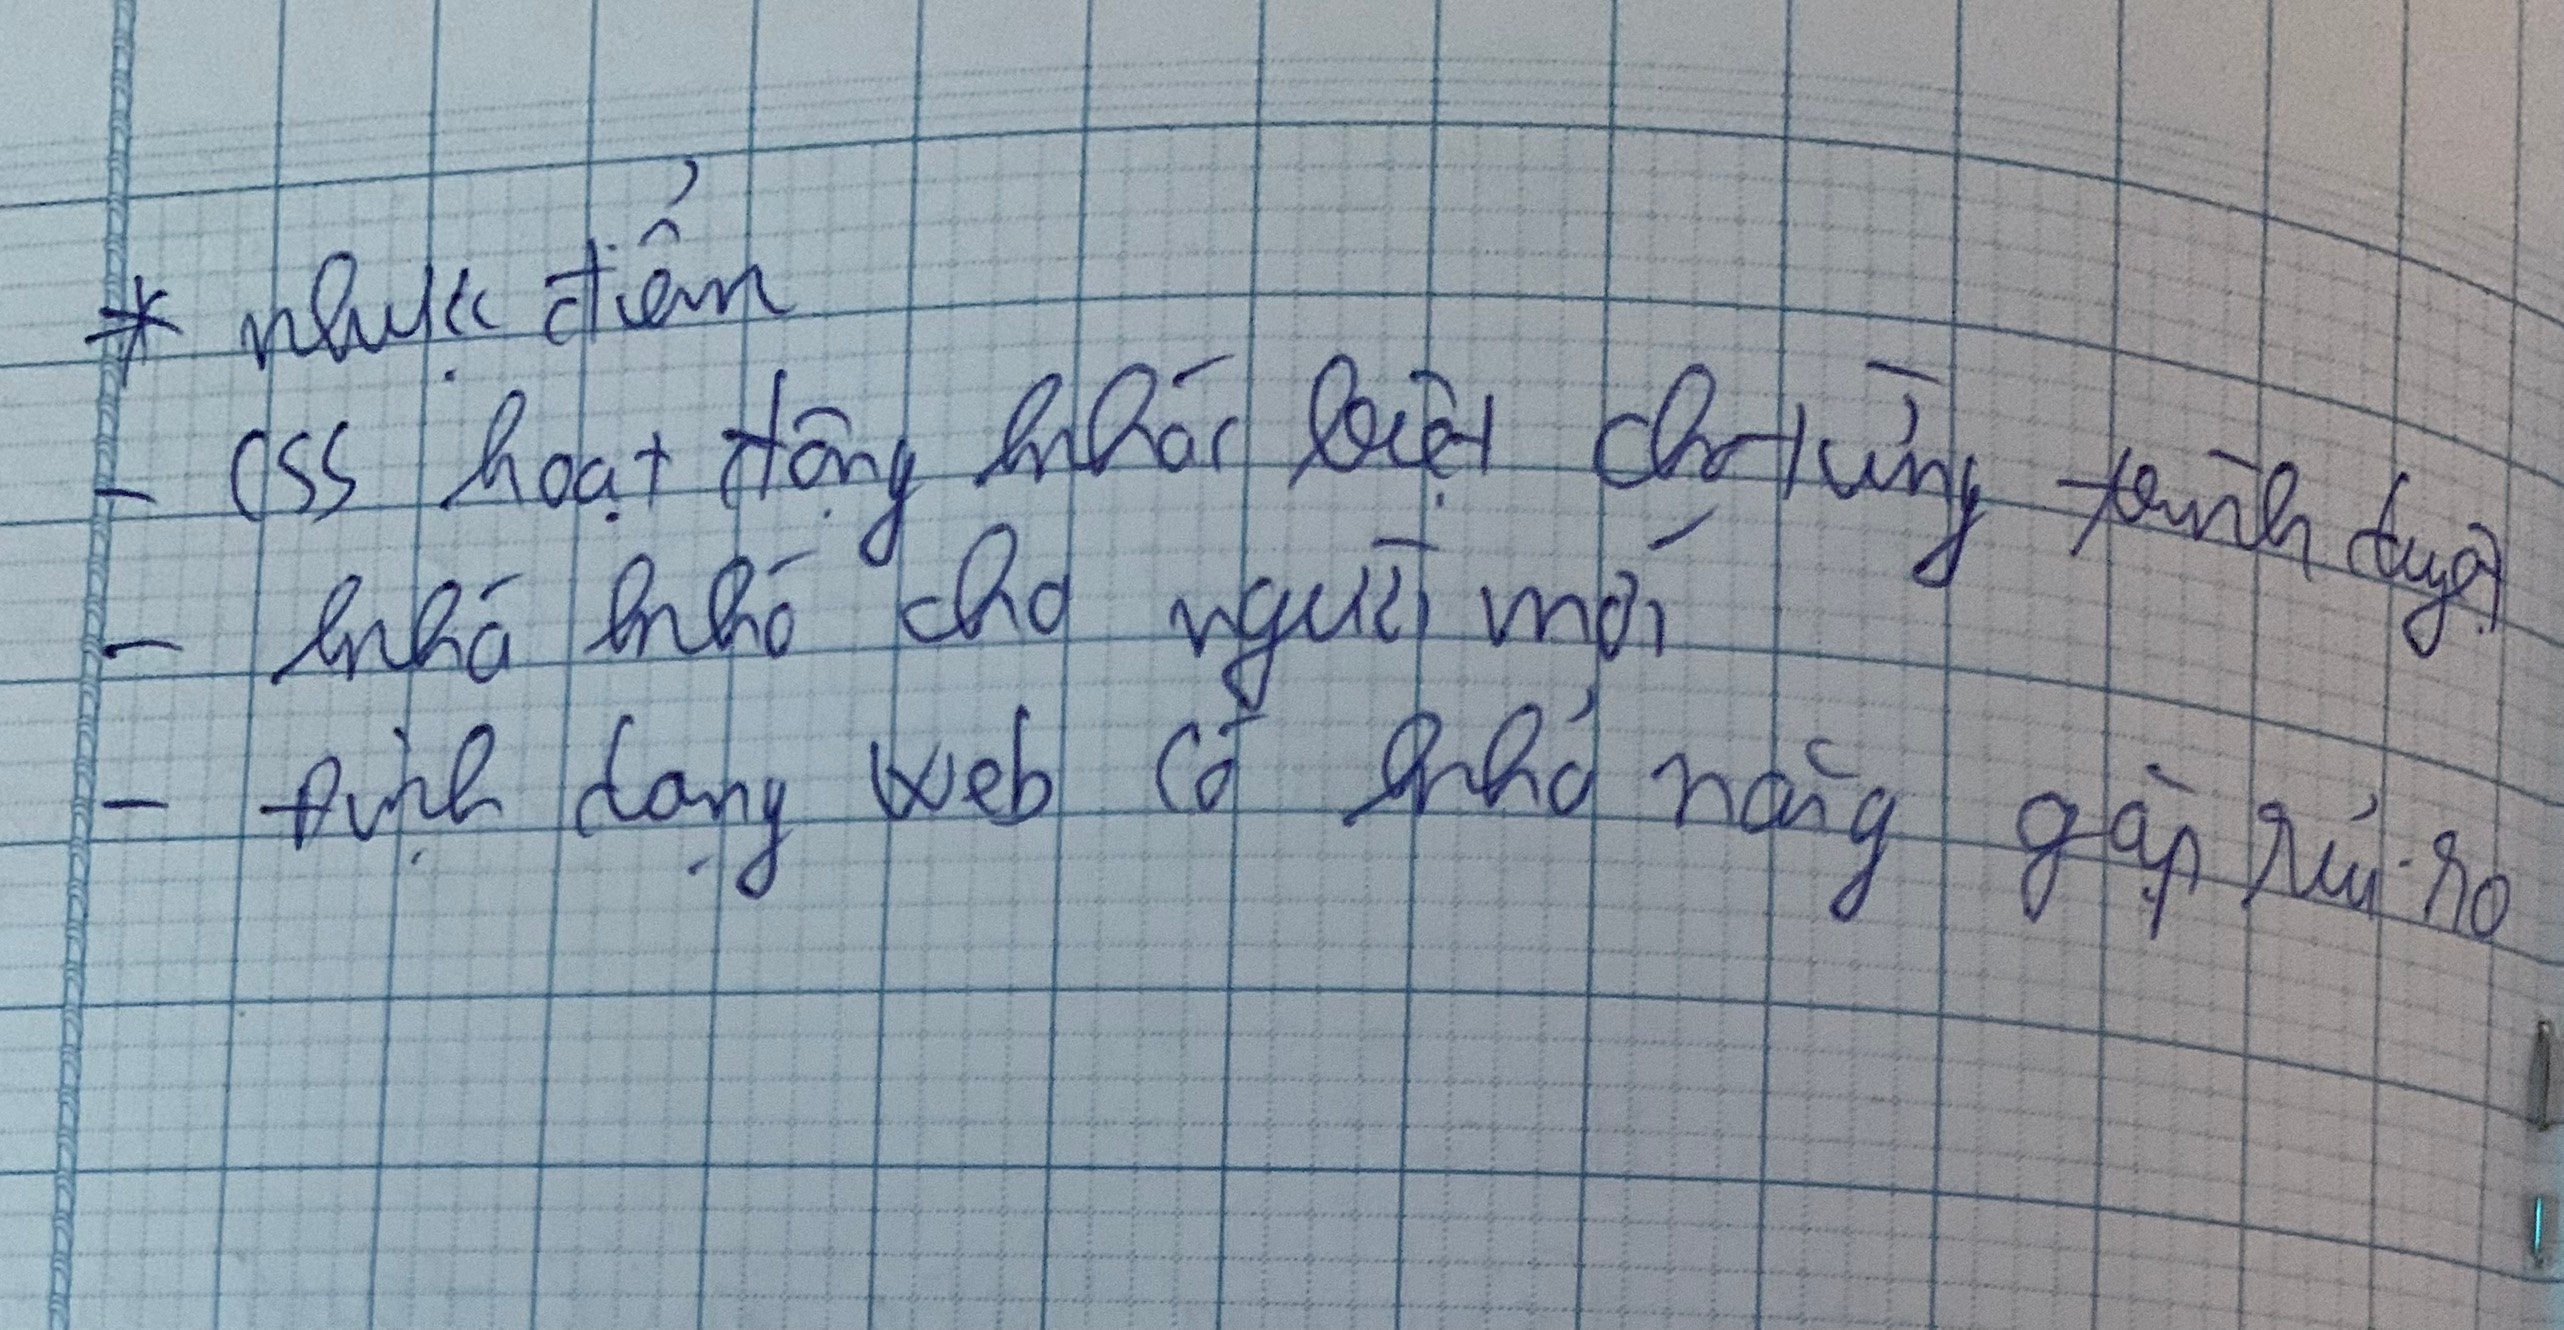 * nhược điểm
- CSS hoạt động khác biệt cho từng trình duyệt
- khá khó cho người mới
- định dạng web có khả năng gặp rủi ro